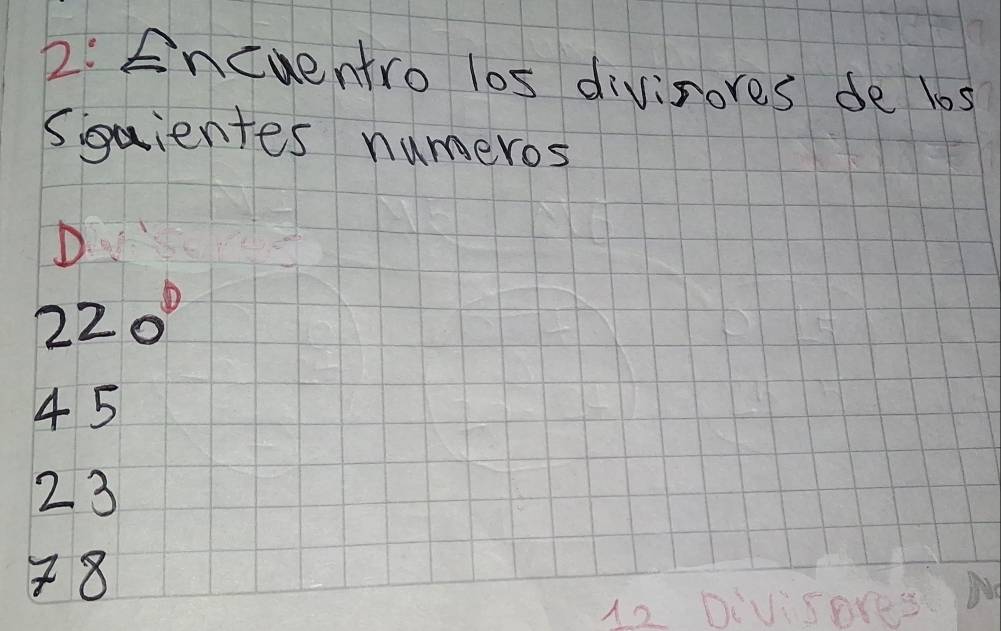 2: Encuentro los divisores de los
siguientes numeros
Divisores
220 D
45
23
78
12 Divisores